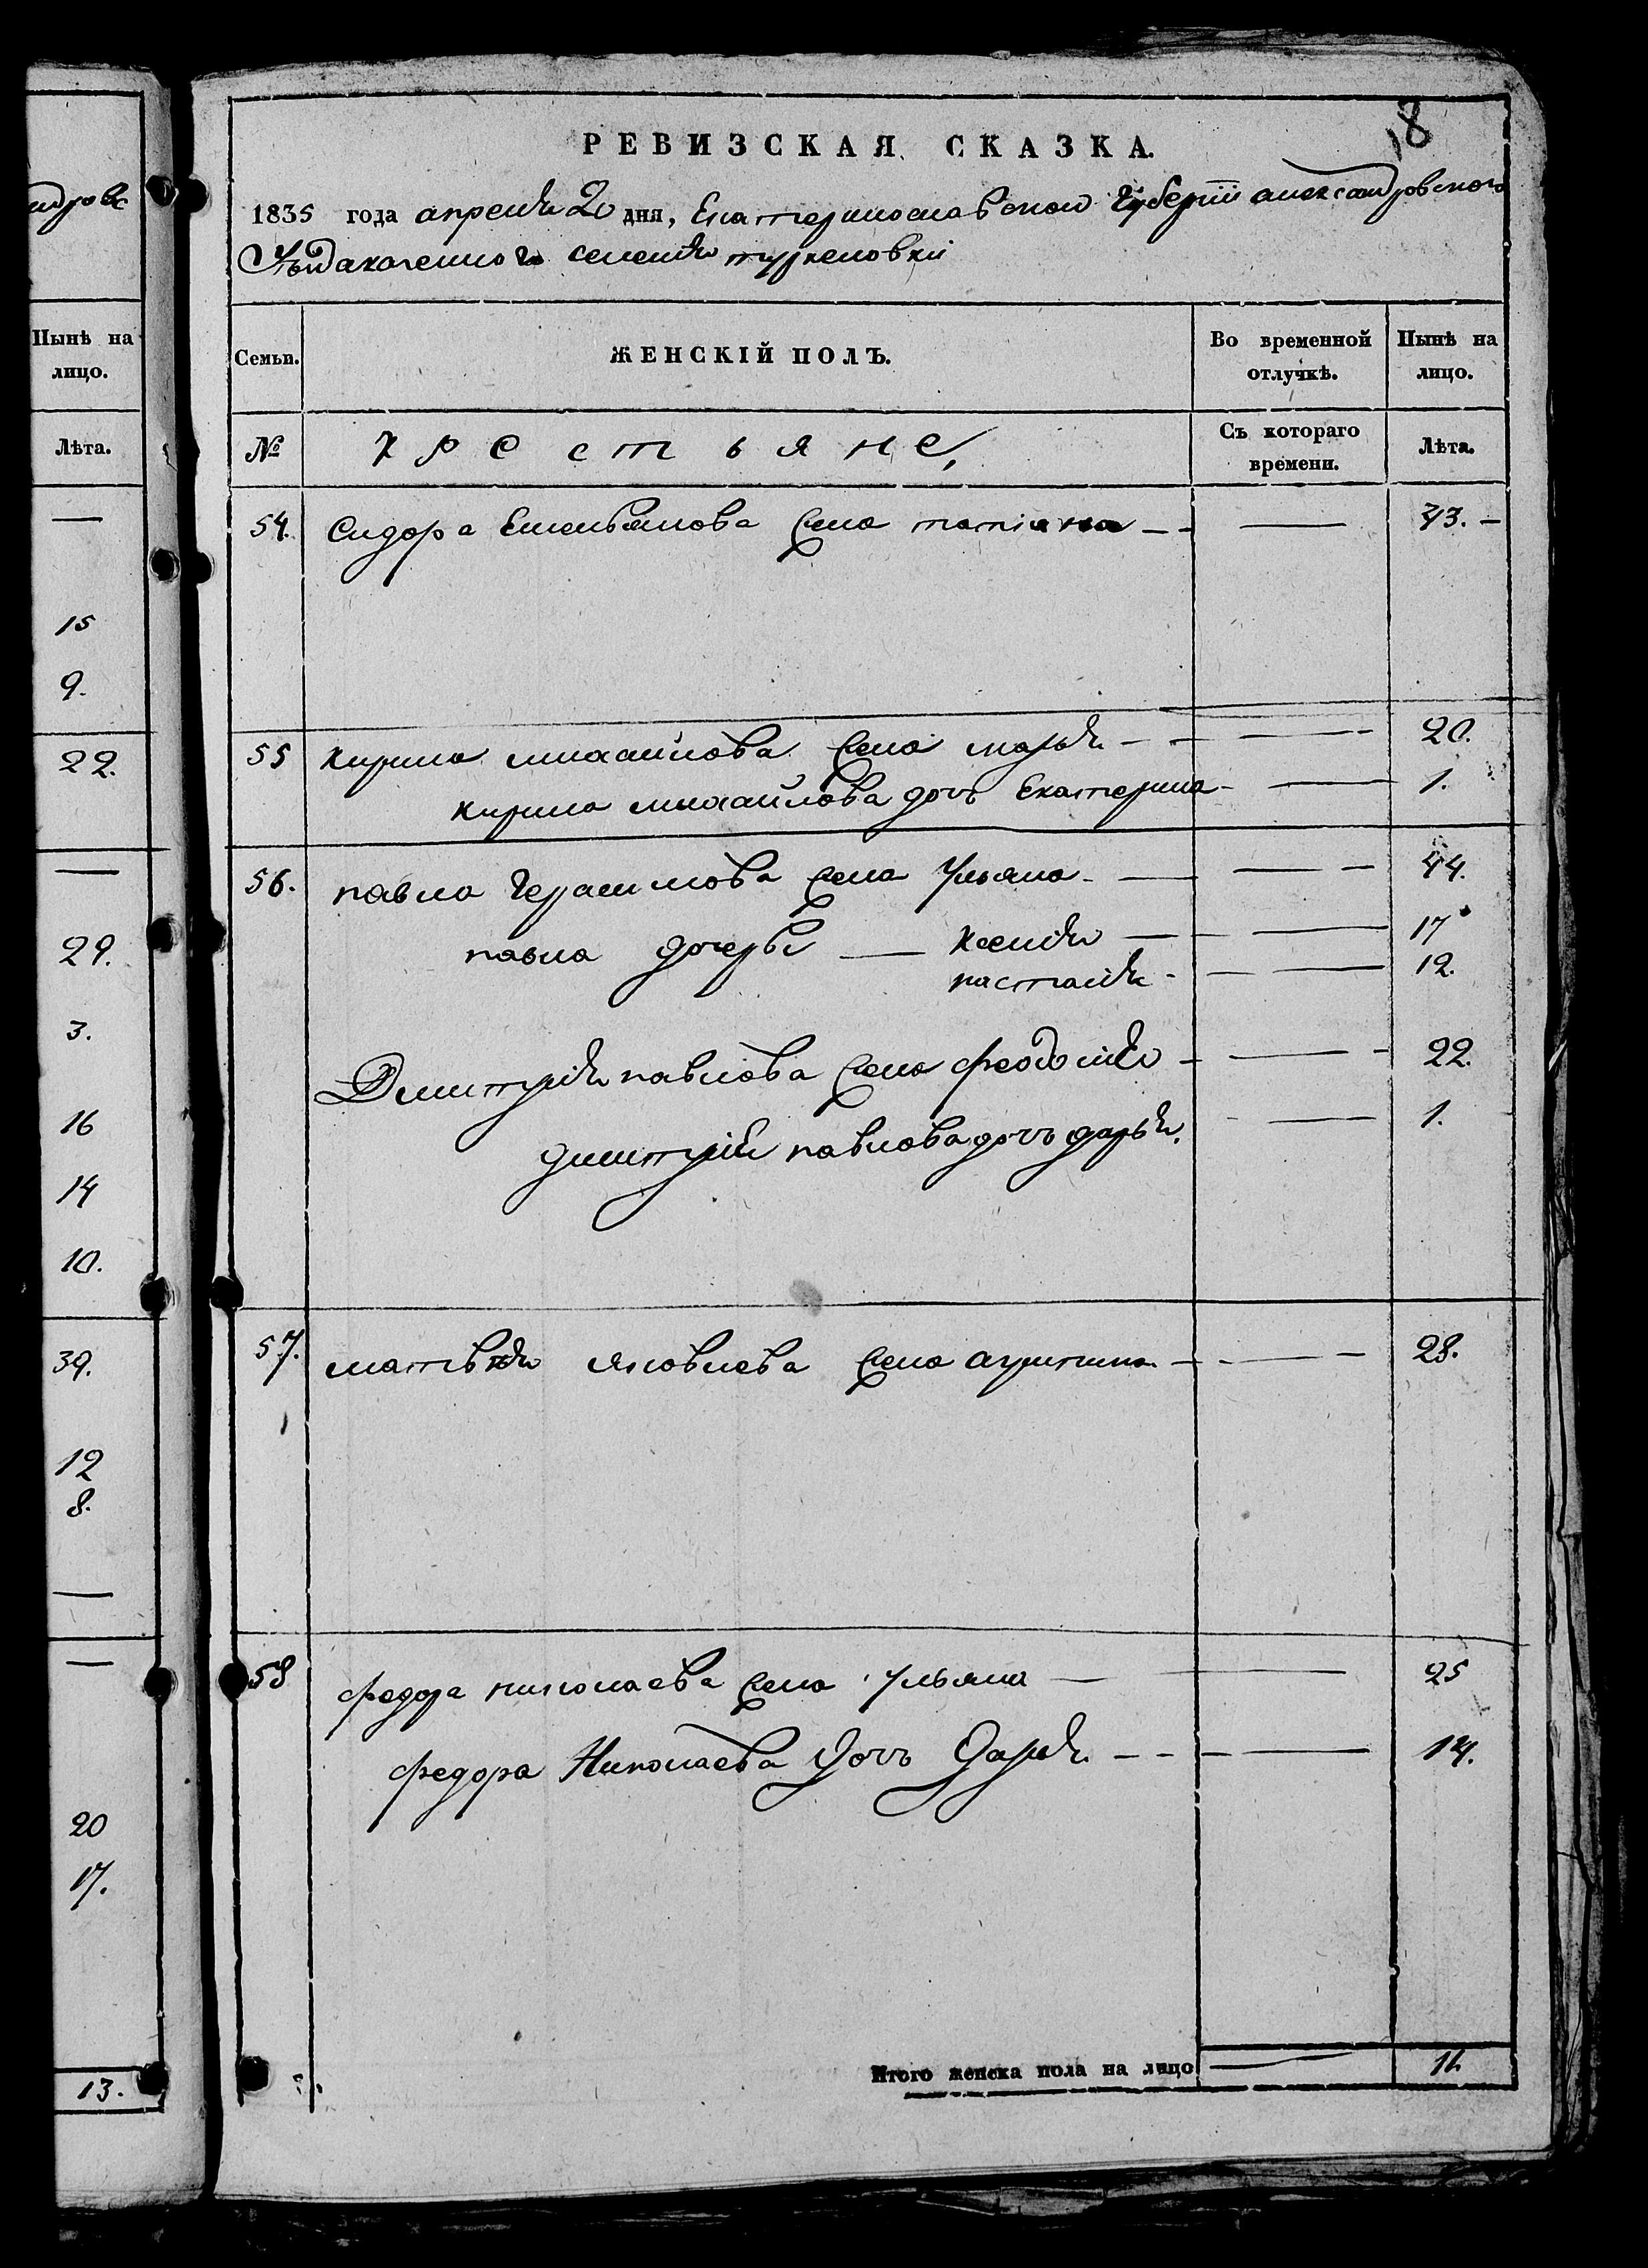 18
РЕВИЗСКАЯ СКАЗКА.
1835 года апреля 20 дня, Екатеринославской Губернїи александровского
Уезда казенного селения туркеновки
ндровс
Нынѣ на лицо.
Лѣта.
—
15
9.
22.
—
29.
3.
16
14
10.
39.
12
8.
—
—
20
17.
13.
Семьи. ЖЕНСКІЙ ПОЛЪ. Во временной отлучкѣ. Нынѣ на лицо.
№ Крестьяне, Съ котораго времени. Лѣта.
54. Сидора Емельянова жена татіана — — 43. —
55 кирила михайлова жена марья — — 20.
кирила михайлова дочь Екатерина — — 1.
56. павла Герасимова жена Ульяна — — 44.
павла дочери — ксенія — — 17
настасія — — 12.
Дмитрія павлова жена феодосія — — 22.
дмитрія павлова дочь дарья. — 1.
57. матвея яковлева жена агрипина — — 28.
58 федора николаева жена Ульяна — — 25
федора Николаева дочь Дарья — — 14.
Итого женска пола на лицо — 11